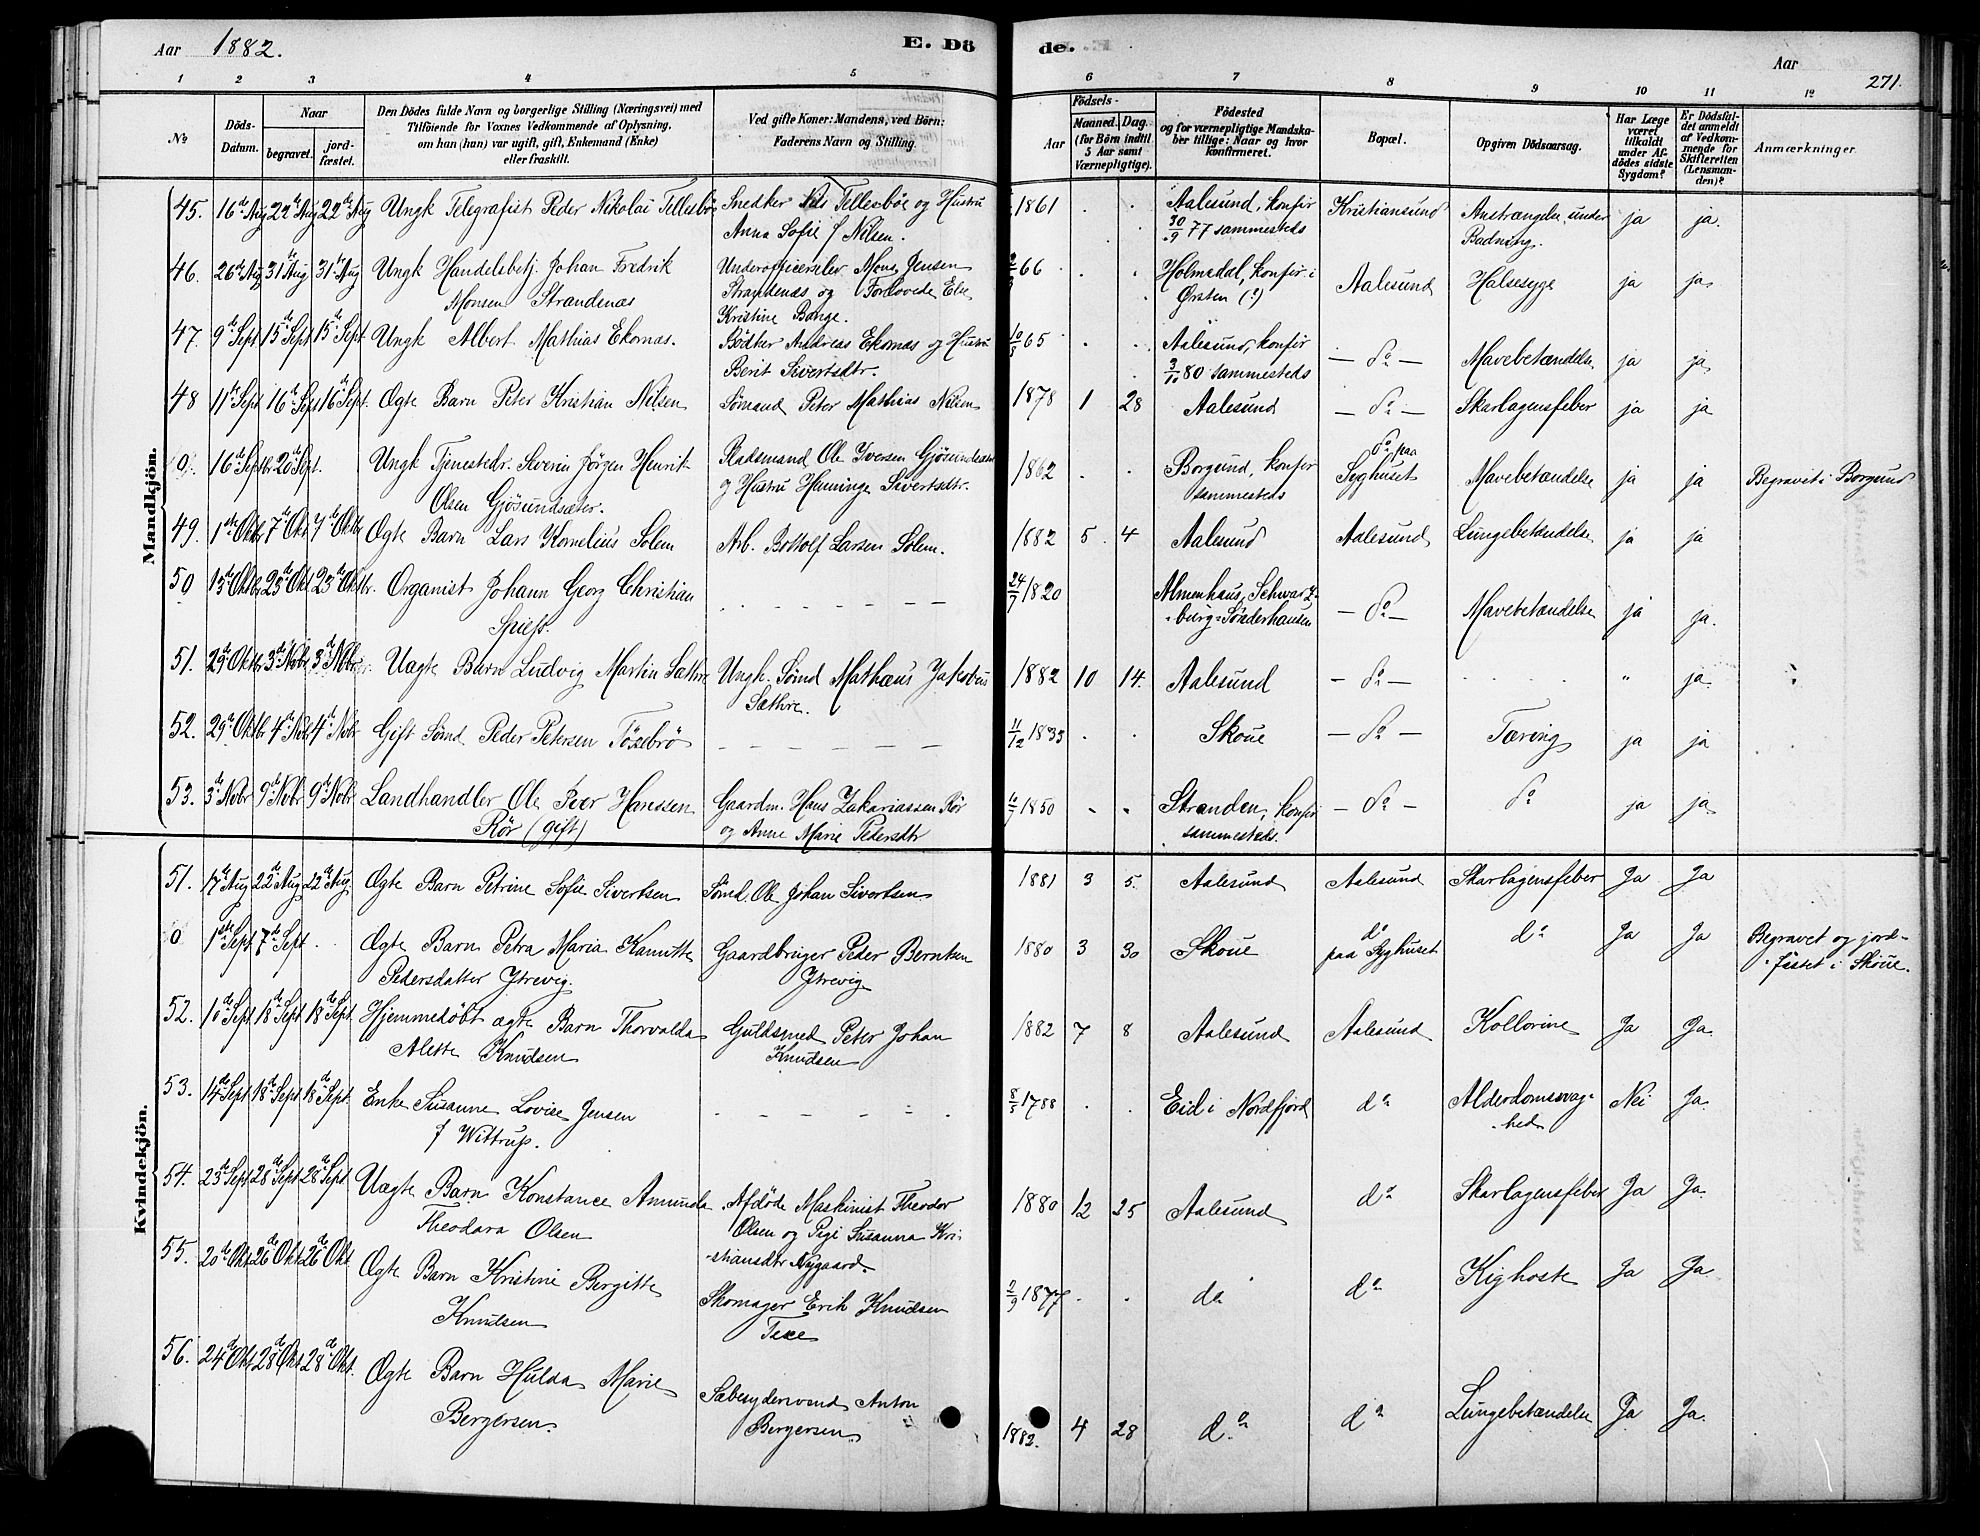 Aar 1882. E. Dö
de. Aar
271.
1 2 3 4 5 6 7 8 9 10 11 12
No Döds-Datum. Naar begravet. jord-fæstet. Den Dödes fulde Navn og borgerlige Stilling (Næringsvei) med Tilföiende for Voxnes Vedkommende af Oplysning, om han (hun) var ugift, gift, Enkemand (Enke) eller fraskilt. Ved gifte Koner: Mandens, ved Börn: Faderens Navn og Stilling.
Aar Födsels- Maaned. Dag. (for Börn indtil 5 Aar samt Værnepligtige). Födested og for værnepligtige Mandska-ber tillige: Naar og hvor konfirmeret. Bopæl. Opgiven Dödsaarsag. Har Læge været tilkaldt under Af-dödes sidste Sygdom? Er Dödsfal-det anmeldt af Vedkom-mende for Skifteretten (Lensman-den)? Anmærkninger.
Mandkjön.
45. 16de Aug 22de Aug 22de Aug Ungk Telegrafist Peder Nikolai Tellesbø Snedker Nils Tellesbøe og Hustru 1861 . . Aalesund, konfir Kristiansund Anstrængelse under ja ja.
Anna Sofie f Nilsen. 30/9 77 sammesteds Badning.
46. 26de Aug 31te Aug 31te Aug Ungk Handelsbetj. Johan Fredrik Underofficerselev Mons Jensen 66 . . Holmedal, konfir i Aalesund Halsesyge ja ja
Monsen Strandenæs Strandenæs og Forlovede Else Ørsten (?)
Kristine Bange.
47. 9de Sept 15de Sept 15de Sept Ungk Albert Mathias Ekornæs. Bødker Andreas Ekornæs og Hustru 65 . . Aalesund, konfir — do — Mavebetændelse ja ja
Berit Sivertsdtr. 3/10 80 sammesteds
48 11te Sept 16de Sept 16de Sept. Ægte Barn Peter Kristian Nilsen Sømand Peter Mathias Nilsen 1878 1 28 Aalesund — do — Skarlagensfeber ja ja
0. 16de Septbr 20de Sept. Ungk Tjenestedr. Severin Jörgen Henrik Pladsmand Ole Iversen Gjøsundsæter 1862 . Borgund, konfir do paa Mavebetændelse ja ja Begravet i Borgund
Olsen Gjösundsæter. og Hustru Henninge Sivertsdtr. sammesteds Syghuset
49. 1ste Oktbr 7de Okt 7de Oktbr Ægte Barn Lars Kornelius Solem Arb. Bottolf Larsen Solem. 1882 5 4 Aalesund Aalesund Lungebetændelse ja ja
50 15de Oktbr 23de Okt 23de Oktbr. Organist Johann Georg Christian . . — — — 24/7 1820 Almenhaus, Schwarz- — do — Mavebetændelse ja ja.
Spiess. burg-Sønderhausen
51. 29de Oktbr 3de Novbr 3de Novbr Uægte Barn Ludvig Martin Sæthre Ungk. Sømd Mathæus Jakobus 1882 10 14. Aalesund — do — . . . " ja
Sæthre.
52. 29de Oktbr 4de Nov 4de Nobr Gift Sømd Peder Petersen Tössebrö — — — — 11/12 1833 . . Skoue — do — Tæring ja ja
53. 3de Nobr 9de Nobr 9de Nobr Landhandler Ole Peer Hanssen Gaardm. Hans Zakariassen Rör 1850 " " Stranden, konfir — do — do ja ja
Rör (gift) og Anne Marie Pedersdtr sammesteds.
Kvindekjön.
51. 17de Aug 22de Aug 22de Aug. Ægte Barn Petrine Sofie Sivertsen Sömd. Ole Johan Sivertsen 1881 3 5. Aalesund Aalesund Skarlagensfeber Ja Ja
0 1ste Sept 7de Sept . Ægte Barn Petra Maria Kamitte Gaardbruger Peder Berntsen 1880 3 30 Skoue do do Ja Ja Begravet og jord-
Pedersdatter Ytrevig. Ytrevig paa Syghuset fæstet i Skoue.
52. 10de Sept 18de Sept 18de Sept Hjemmedöbt ægte Barn Thorvalda Guldsmed Peter Johan 1882 7 8 Aalesund Aalesund Kollorine Ja Ja.
Alette Knudsen Knudsen
53. 14de Sept 18de Sept 18de Sept. Enke Susanne Lovise Jensen — — — — 8/5 1788 . . Eid i Nordfjord do Alderdomssvag- Nei Ja.
f Wittrup. hed
54. 23de Sept 28de Sept 28de Sept. Uægte Barn Konstance Amunda Afdöde Maskinist Theodor 1880 12 25 Aalesund do Skarlagensfeber Ja Ja.
Theodora Olsen Olsen og Pige Susanna Kri-
stiansdtr Nygaard.
55. 20de Okt 26de Okt 26de Okt Ægte Barn Kristine Bergitte Skomager Erik Knudsen 2/9 1877 . . do do Kighoste Ja Ja
Knudsen Texe
56. 24de Okt 28de Okt 28de Okt. Ægte Barn Hulda Marie Sæbesyder Anton 1882. 4 28 do do Lungebetændelse Ja Ja.
Bergersen. Bergersen.